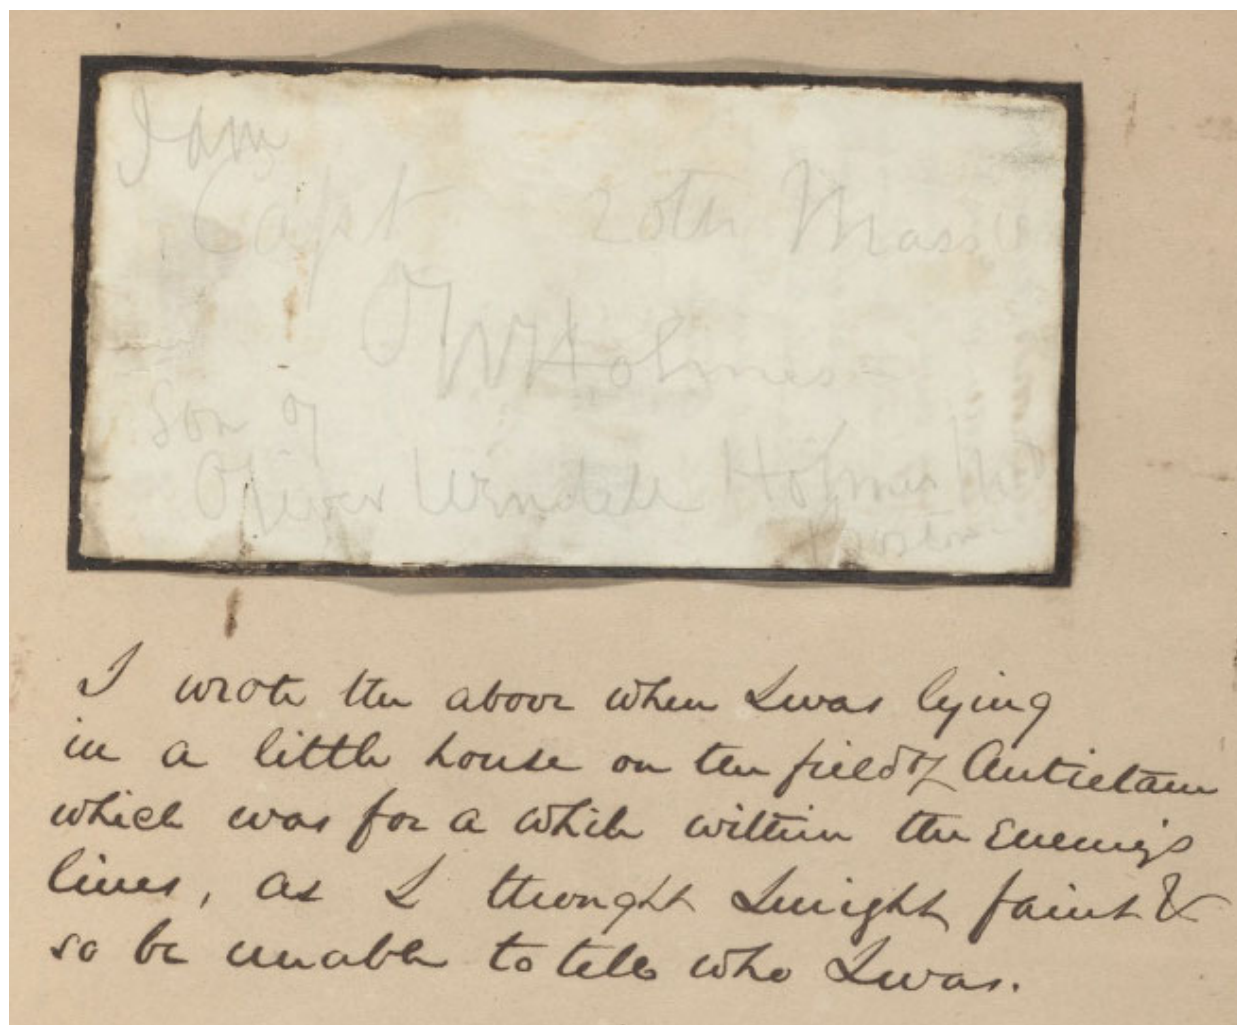 I am
Capt 20th Mass V
O W Holmes
Son of
Oliver Wendell Holmes M D
Boston
I wrote the above when I was lying
in a little house on the field of Antietam
which was for a while within the enemy's
lines, as I thought I might faint &
so be unable to tell who I was.